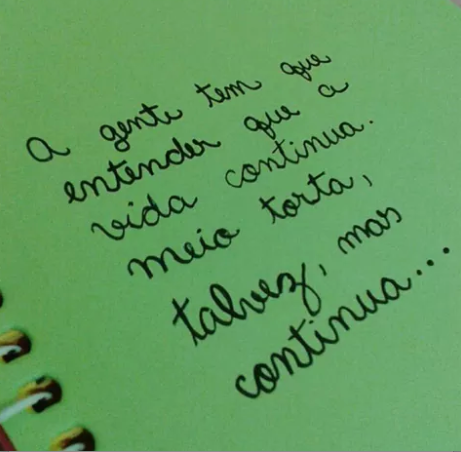 a gente tem que
entender que a
vida continua.
meio torta,
talvez, mas
continua...